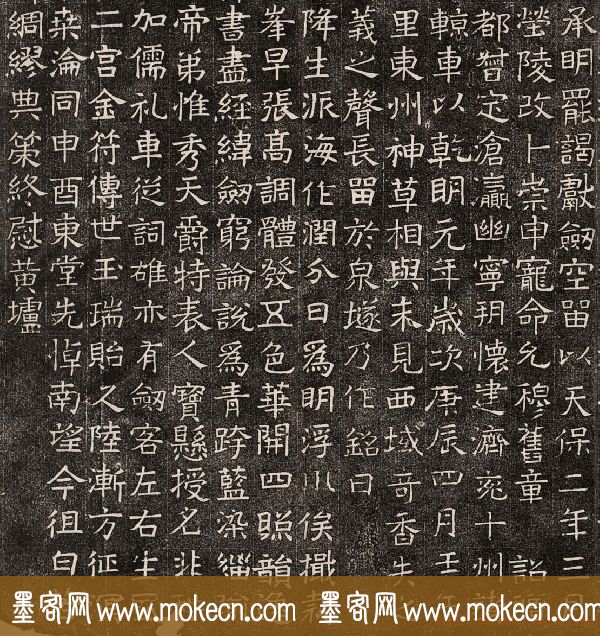 承明罷謁獻劒空留以天保二年三月
塋陵改卜崇申寵命允穆舊章 詔
都督定滄瀛幽寧玥懷建濟兖十州
轅車以乾明元年歲次庚辰四月壬
里東州神草相與未見西域奇香失
義之聲長留於泉塗乃作銘曰
降生派海作潤分日爲明浮小俟撮
峯早張高調體發五色華開四照韻
書盡經緯劒窮論說爲青跨藍染緇
帝弟惟秀天爵特表人寶懸授名非
加儒礼車從詞雄亦有劒客左右生
二宫金符傳世玉瑞貽久陸漸方征
桒淪同申酉東堂先悼南望今徂白
綢繆典策終慰黄壚
墨客网 www.mokecn.com 墨客网 www.mokecn.com